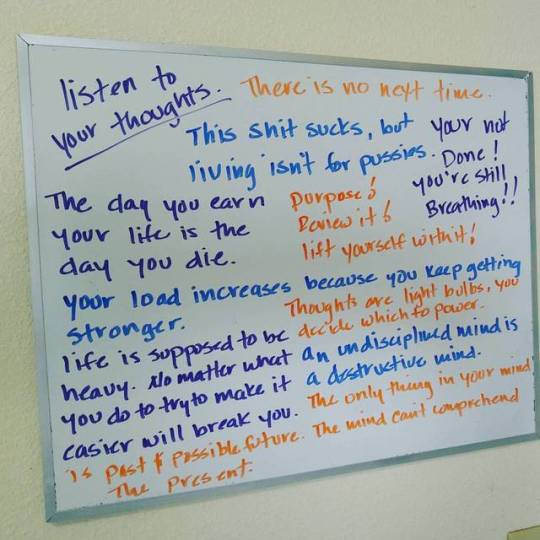 listen to
your thoughts.
There is no next time.
This shit sucks, but
living isn't for pussies.
your not
Done!
you're still
Breathing!!
The day you earn
your life is the
day you die.
purpose!
Review it!
lift yourself with it!
your load increases because you keep getting
stronger.
Thoughts are light bulbs, you
decide which to power.
life is supposed to be
heavy. No matter what
you do to try to make it
easier will break you.
an undisciplined mind is
a destructive mind.
The only thing in your mind
is past & possible future. The mind can't comprehend
The present.